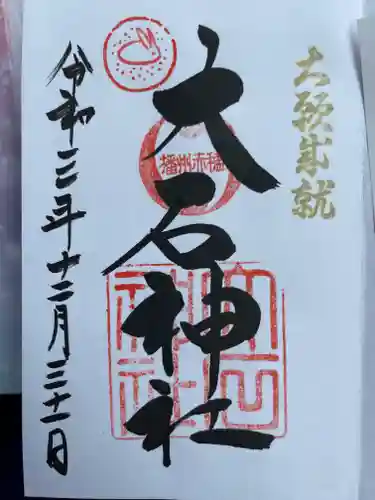 大願成就
大石神社
播州赤穂
大石神社
令和三年十二月三十一日